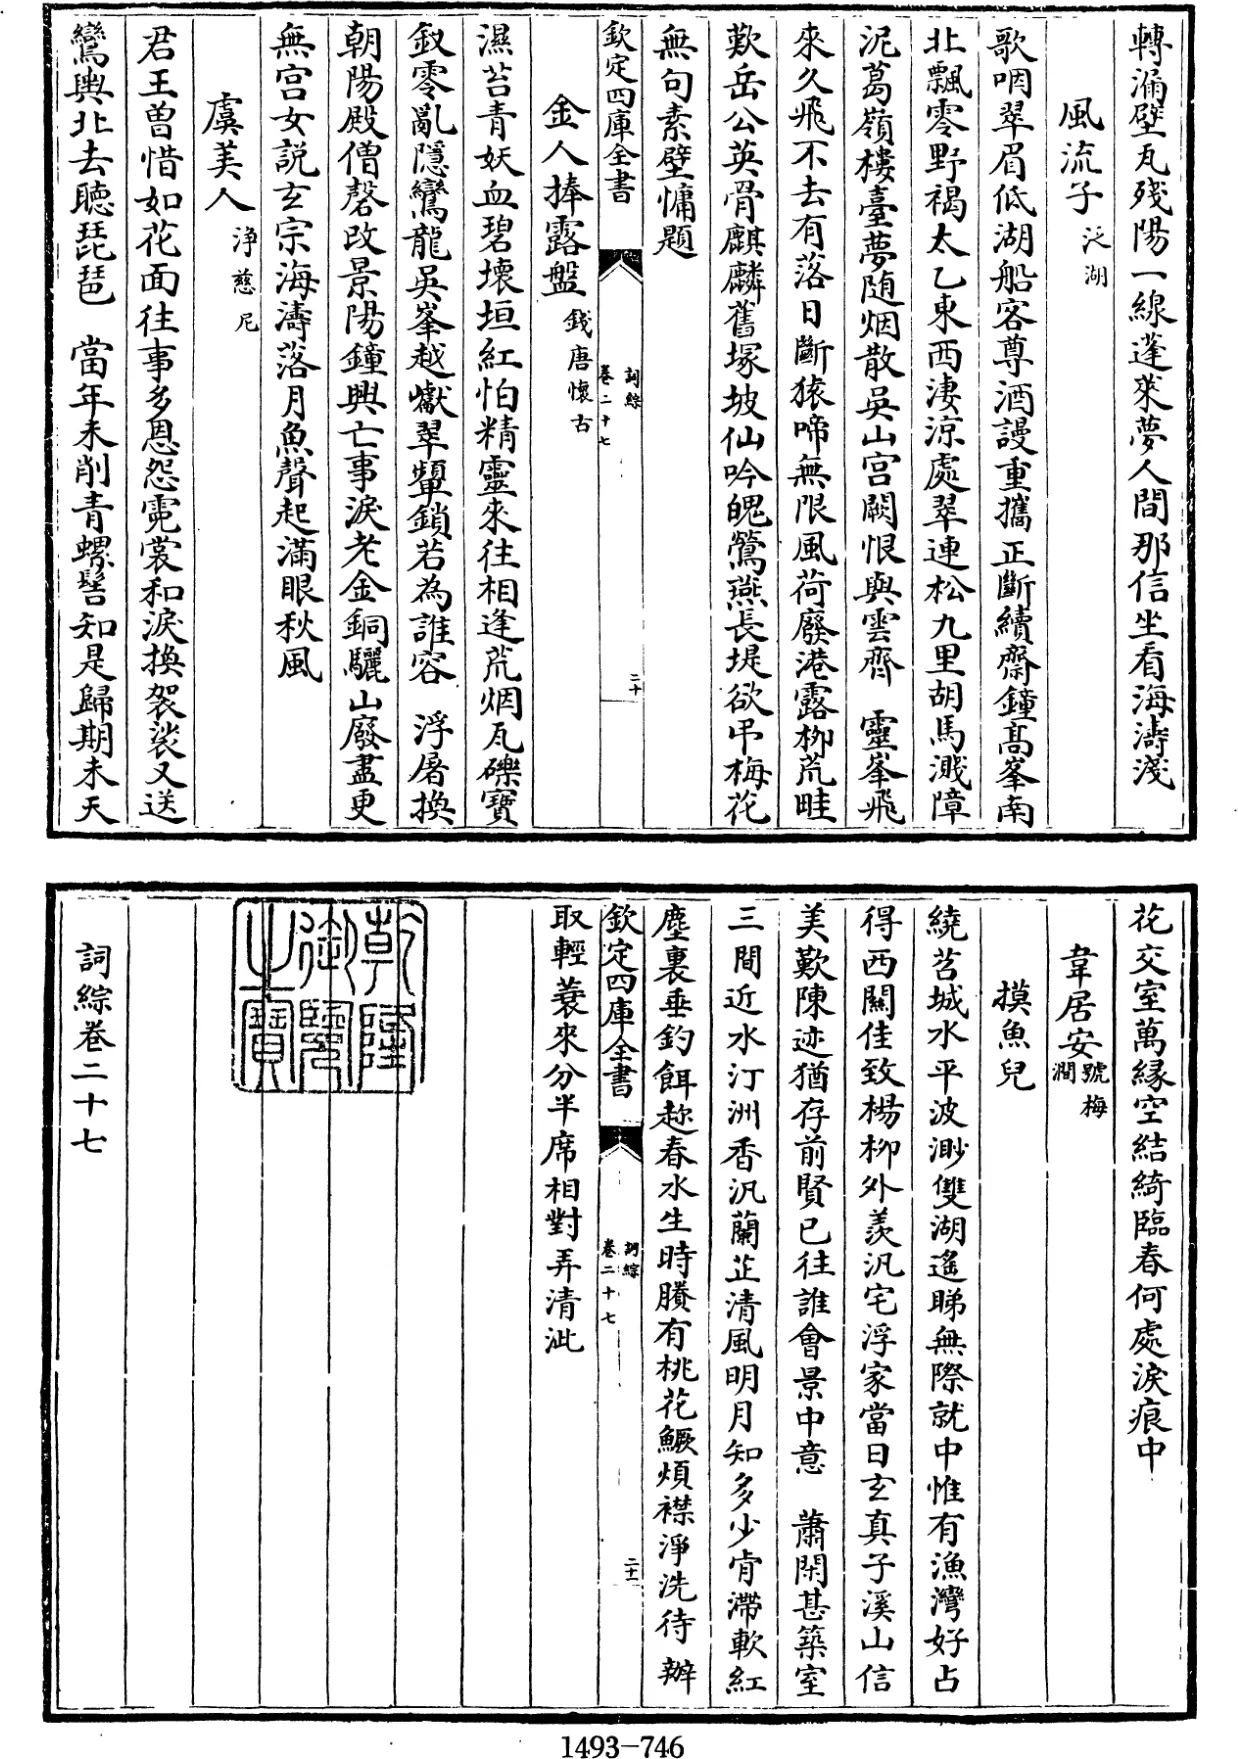 轉漏壁瓦殘陽一線蓬萊夢人間那信坐看海濤淺
風流子 泛湖
歌咽翠眉低湖船客尊酒謾重攜正斷續齋鐘高峯南
北飄零野褐太乙東西淒涼處翠連松九里胡馬濺障
泥葛嶺樓臺夢隨烟散吳山宮闕恨與雲齊 靈峯飛
來久飛不去有落日斷猿啼無限風荷廢港露柳荒畦
歎岳公英骨麒麟舊塚坡仙吟魄鶯燕長堤欲弔梅花
無句素壁慵題
欽定四庫全書 詞綜 卷二十七 二十
金人捧露盤 錢唐懷古
濕苔青妖血碧壞垣紅怕精靈來往相逢荒烟瓦礫寶
釵零亂隱鸞龍吳峯越巘翠顰鎖若為誰容 浮屠換
朝陽殿僧磬改景陽鐘興亡事淚老金銅驪山廢盡更
無宮女說玄宗海濤落月魚聲起滿眼秋風
虞美人 淨慈尼
君王曽惜如花面往事多恩怨霓裳和淚換袈裟又送
鸞輿北去聽琵琶 當年未削青螺髻知是歸期未天
花交室萬緣空結綺臨春何處淚痕中
韋居安 號梅磵
摸魚兒
繞苕城水平波渺雙湖遥睇無際就中惟有漁灣好占
得西關佳致楊柳外羨汎宅浮家當日玄真子溪山信
美歎陳迹猶存前賢已往誰會景中意 蕭閑甚築室
三間近水汀洲香汎蘭芷清風明月知多少肯滯軟紅
塵裏垂釣餌趂春水生時賸有桃花鱖煩襟淨洗待辦
欽定四庫全書 詞綜 卷二十七 二十一
取輕蓑來分半席相對弄清泚
乾隆御覽之寶
詞綜卷二十七
1493-746